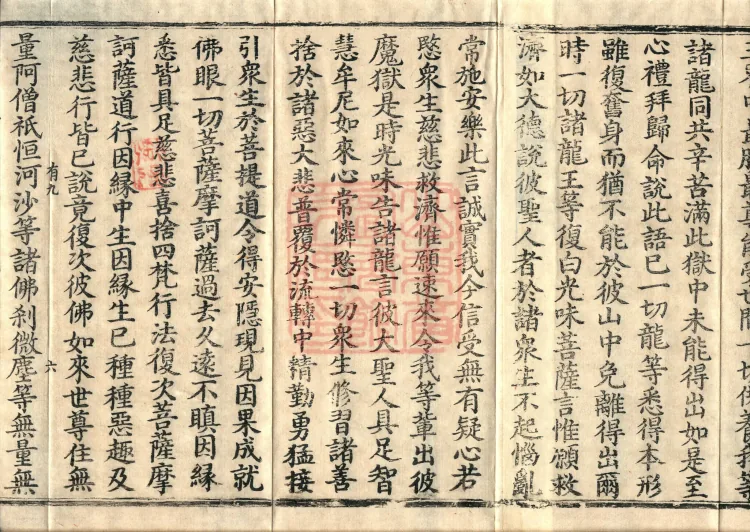 諸龍同共辛苦滿此獄中未能得出如是至
心禮拜歸命說此語已一切龍等悉得本形
雖復奮身而猶不能於彼山中免離得出爾
時一切諸龍王等復白光味菩薩言惟願救
濟如大德說彼聖人者於諸衆生不起惱亂
常施安樂此言誠實我今信受無有疑心若
愍衆生慈悲救濟惟願速來令我等輩出彼
魔獄是時光味告諸龍言彼大聖人具足智
慧牟尼如來心常憐愍一切衆生修習諸善
捨於諸惡大悲普覆於流轉中精勤勇猛接
引衆生於菩提道令得安隱現見因果成就
佛眼一切菩薩摩訶薩過去久遠不瞋因緣
悉皆具足慈悲喜捨四梵行法復次菩薩摩
訶薩道行因緣中生因緣生已種種惡趣及
慈悲行皆已說竟復次彼佛如來世尊住無
有九 六
量阿僧祇恒河沙等諸佛刹微塵等無量無